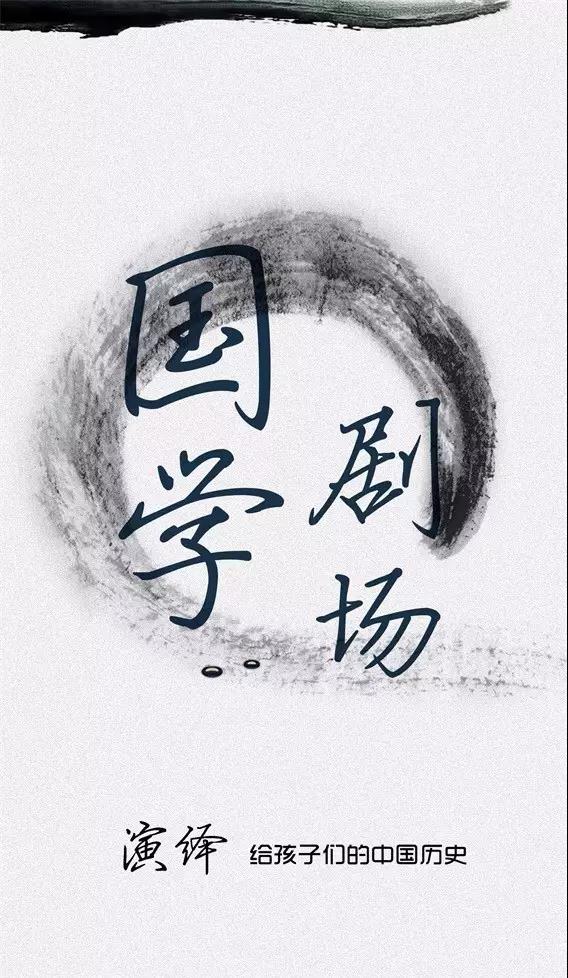 国学
剧场
演绎 给孩子们的中国历史